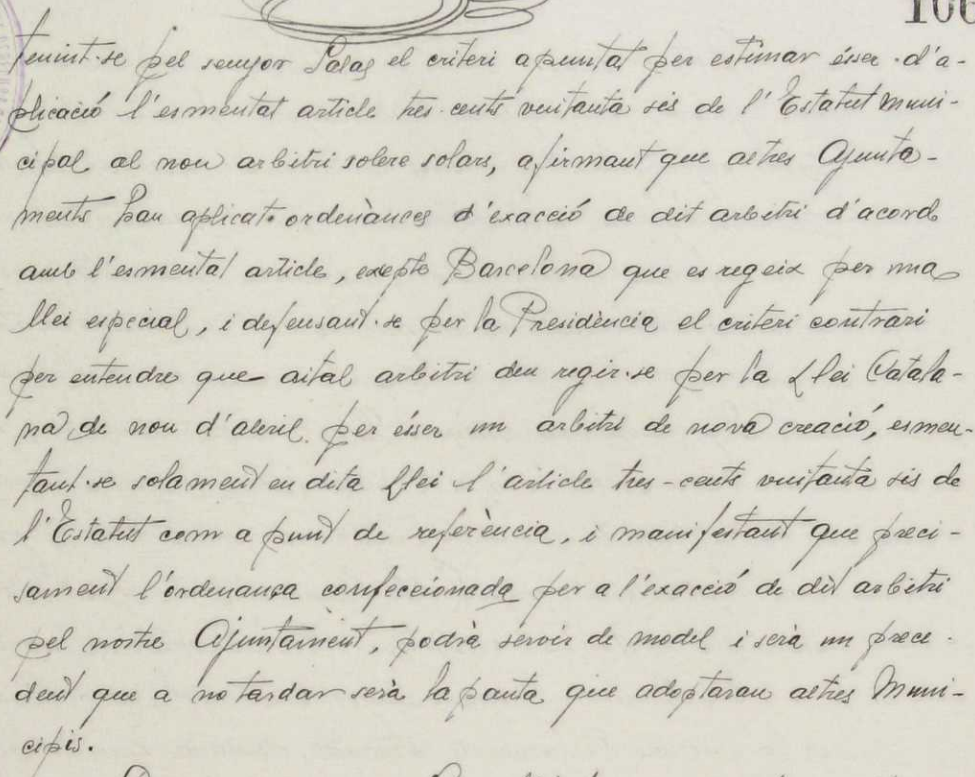 106
tenint-se pel senyor Salas el criteri apuntat per estimar ésser d'a-
plicació l'esmentat article tres-cents vuitanta sis de l'Estatut Muni-
cipal al nou arbitri sobre solars, afirmant que altres Ajunta-
ments han aplicat ordenànces d'exacció de dit arbitri d'acord
amb l'esmentat article, exepte Barcelona que es regeix per una
llei especial, i defensant-se per la Presidència el criteri contrari
per entendre que aital arbitri deu regir-se per la Llei Catala-
na de nou d'abril per ésser un arbitri de nova creació, esmen-
tant-se solament en dita Llei l'article tres-cents vuitanta sis de
l'Estatut com a punt de referència, i manifestant que preci-
sament l'ordenança confeccionada per a l'exacció de dit arbitri
pel nostre Ajuntament, podrà servir de model i serà un prece-
dent que a no tardar serà la pauta que adoptaran altres Muni-
cipis.